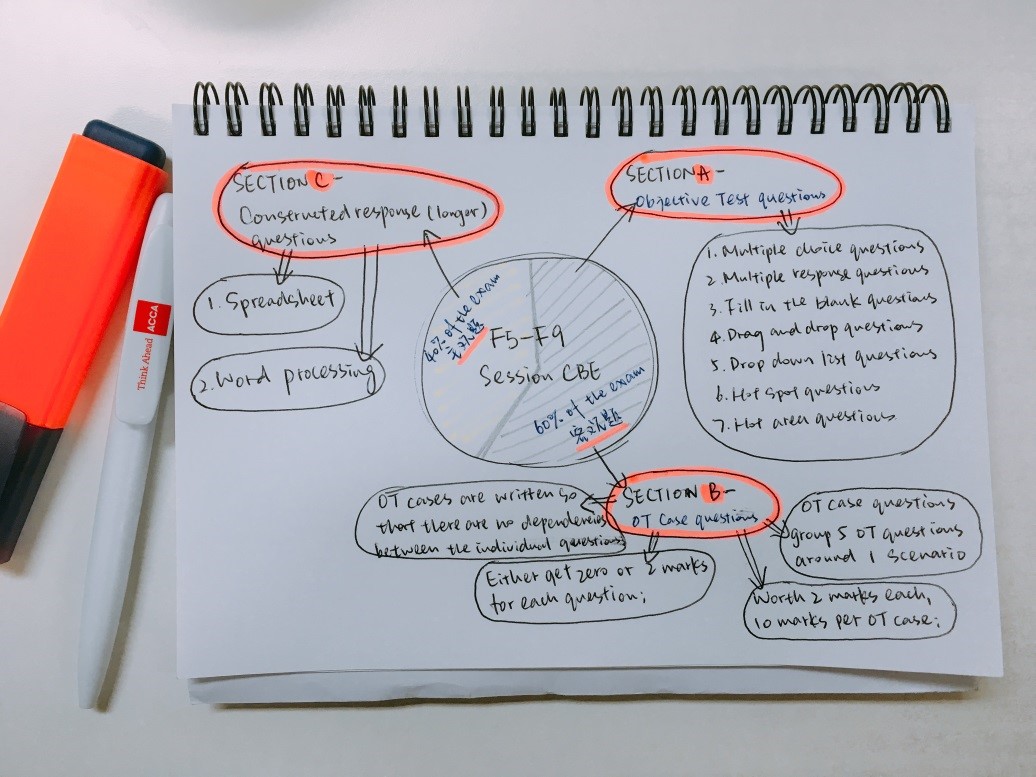 SECTION C-
Constructed response (longer)
questions
1. Spreadsheet
2. Word processing
SECTION A-
Objective Test questions
1. Multiple choice questions
2. Multiple response questions
3. Fill in the blank questions
4. Drag and drop questions
5. Drop down list questions
6. Hot spot questions
7. Hot area questions
40% of the exam
主观题
F5-F9
Session CBE
60% of the exam
客观题
SECTION B-
OT Case questions
OT cases are written so
that there are no dependencies
between the individual questions
Either get zero or 2 marks
for each question;
OT case questions
group 5 OT questions
around 1 scenario
Worth 2 marks each,
10 marks per OT case;
Think Ahead ACCA